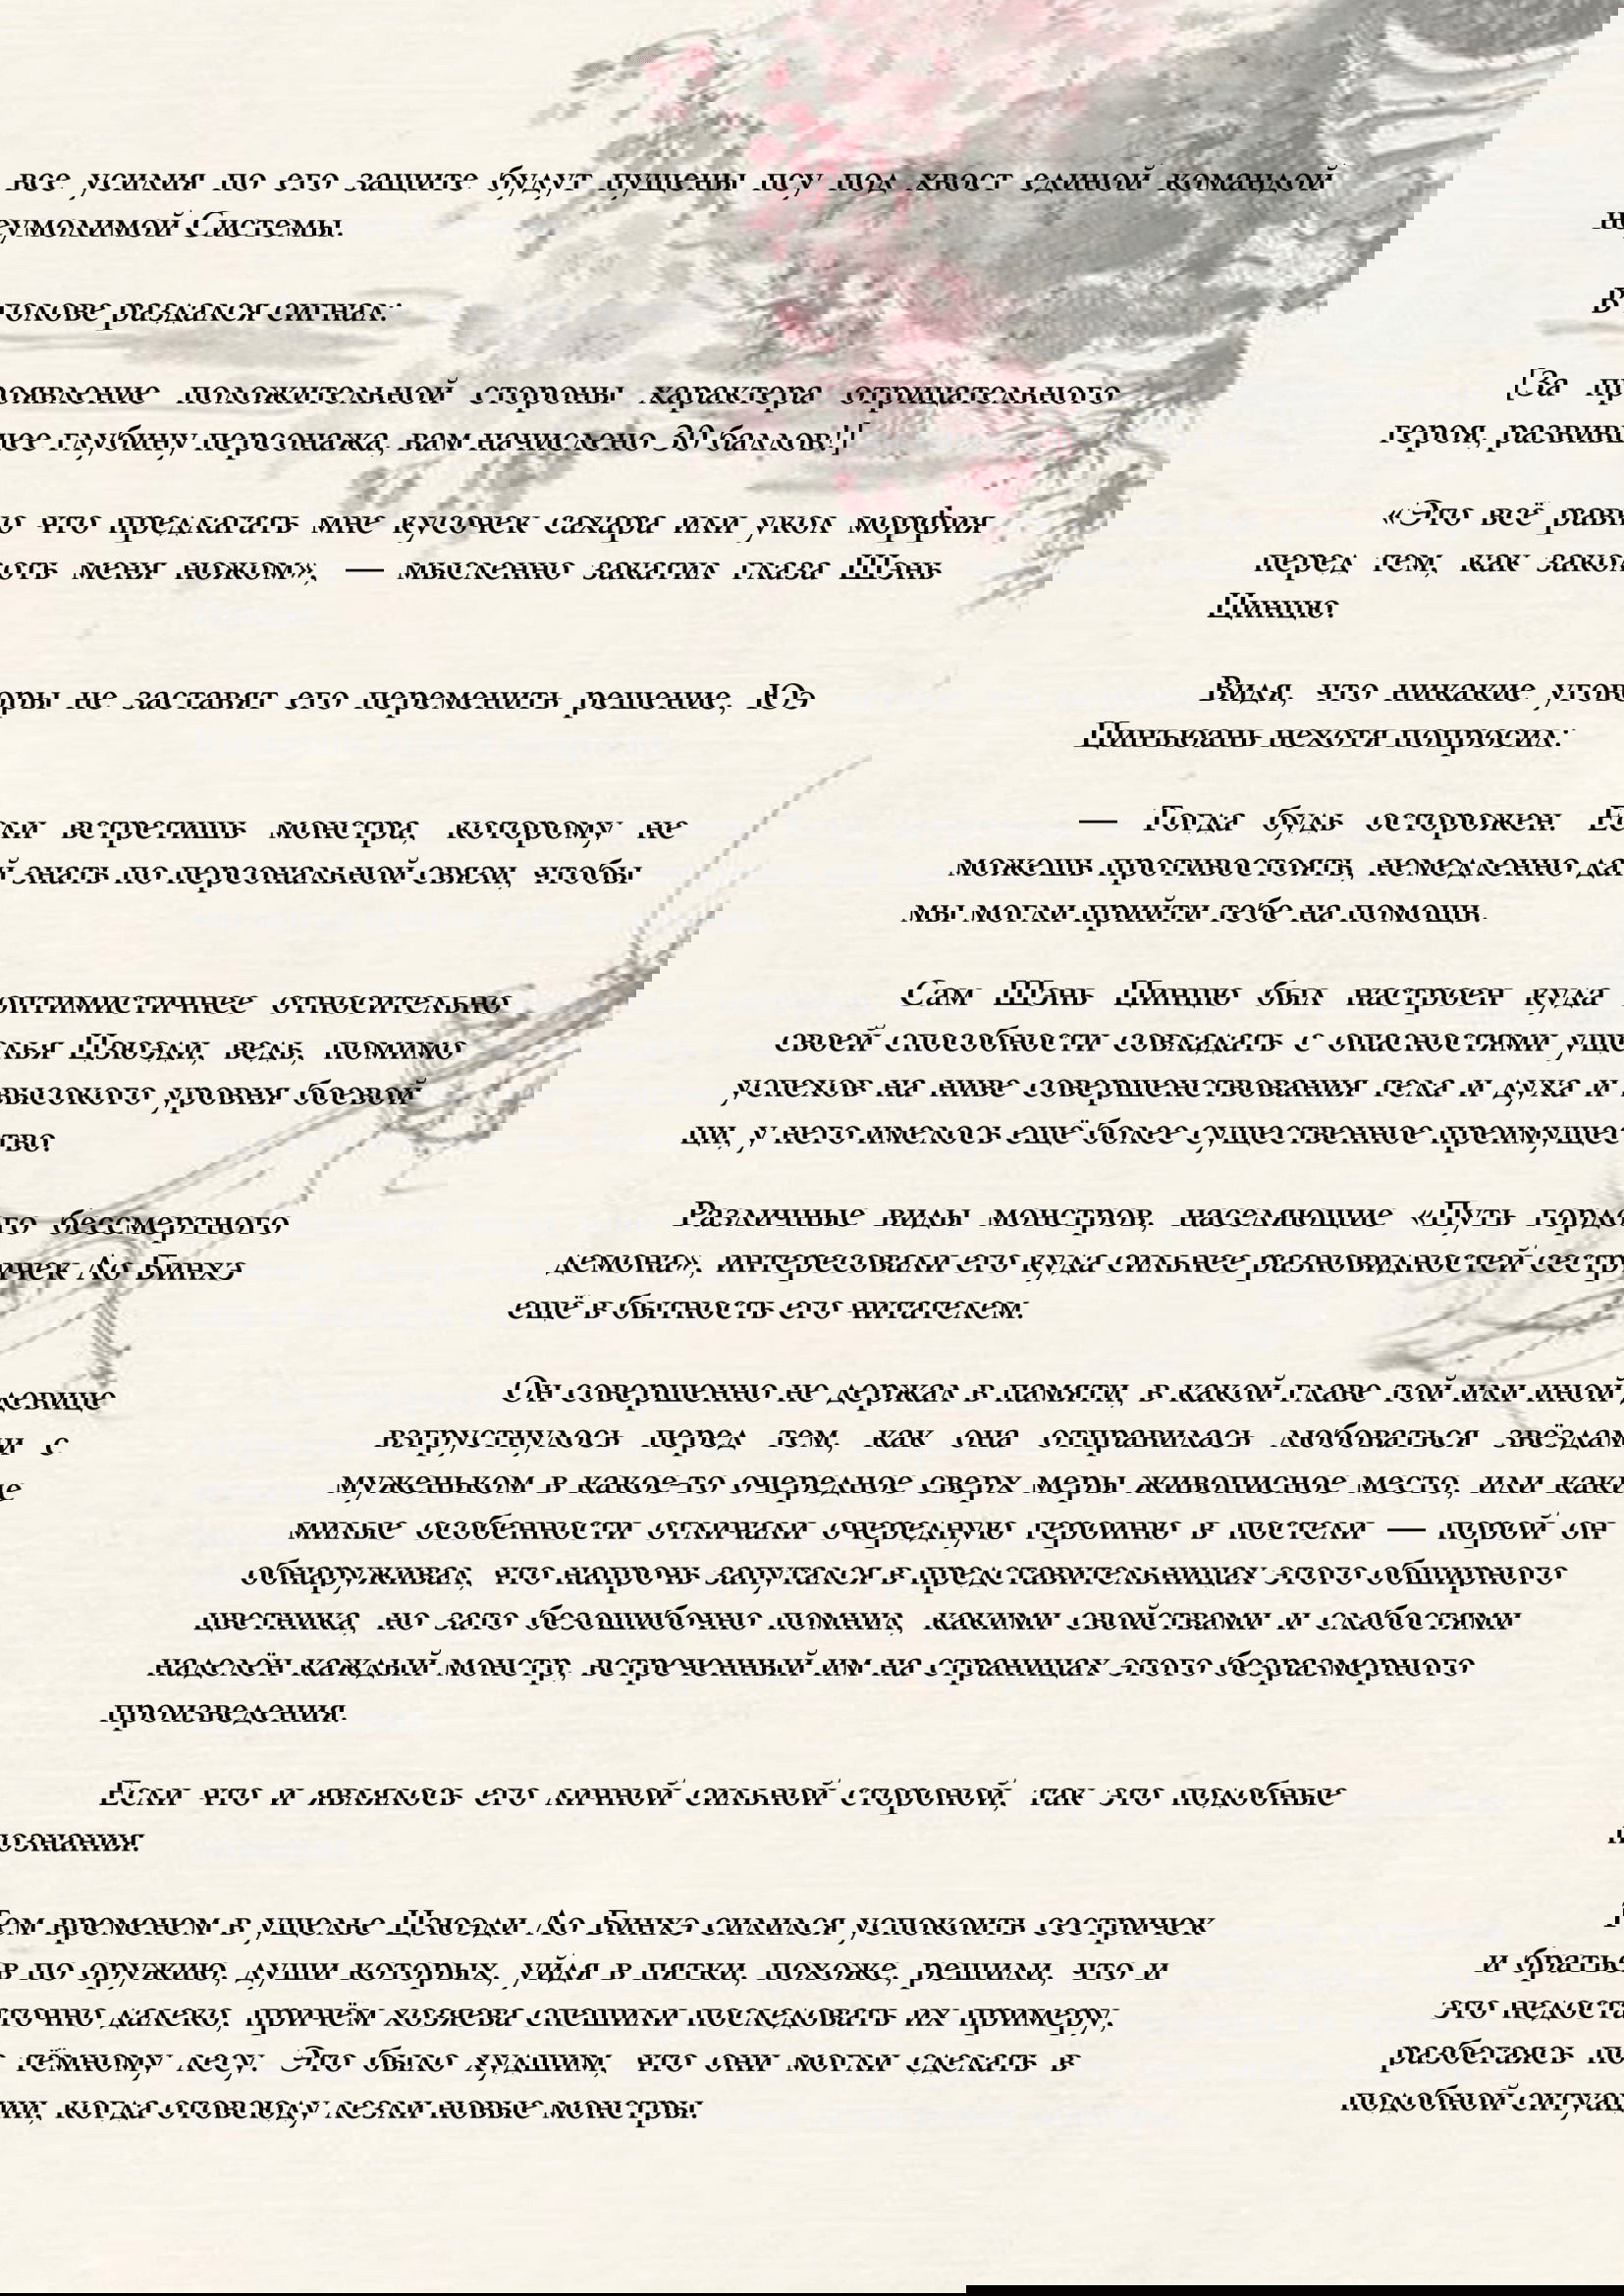 все усилия по его защите будут пущены псу под хвост единой командой
неумолимой Системы.
В голове раздался сигнал:
[За проявление положительной стороны характера отрицательного
героя, развившее глубину персонажа, вам начислено 30 баллов!]
«Это всё равно что предлагать мне кусочек сахара или укол морфия
перед тем, как заколоть меня ножом», — мысленно закатил глаза Шэнь
Цинцю.
Видя, что никакие уговоры не заставят его переменить решение, Юэ
Цинъюань нехотя попросил:
— Тогда будь осторожен. Если встретишь монстра, которому не
можешь противостоять, немедленно дай знать по персональной связи, чтобы
мы могли прийти тебе на помощь.
Сам Шэнь Цинцю был настроен куда оптимистичнее относительно
своей способности совладать с опасностями ущелья Цзюэди, ведь, помимо
успехов на ниве совершенствования тела и духа и высокого уровня боевой
ци, у него имелось ещё более существенное преимущество.
Различные виды монстров, населяющие «Путь гордого бессмертного
демона», интересовали его куда сильнее разновидностей сестричек Ло Бинхэ
ещё в бытность его читателем.
Он совершенно не держал в памяти, в какой главе той или иной девице
взгрустнулось перед тем, как она отправилась любоваться звёздами с
муженьком в какое-то очередное сверх меры живописное место, или какие
милые особенности отличали очередную героиню в постели — порой он
обнаруживал, что напрочь запутался в представительницах этого обширного
цветника, но зато безошибочно помнил, какими свойствами и слабостями
наделён каждый монстр, встреченный им на страницах этого безразмерного
произведения.
Если что и являлось его личной сильной стороной, так это подобные
познания.
Тем временем в ущелье Цзюэди Ло Бинхэ силился успокоить сестричек
и братьев по оружию, души которых, уйдя в пятки, похоже, решили, что и
это недостаточно далеко, причём хозяева спешили последовать их примеру,
разбегаясь по тёмному лесу. Это было худшим, что они могли сделать в
подобной ситуации, когда отовсюду лезли новые монстры.